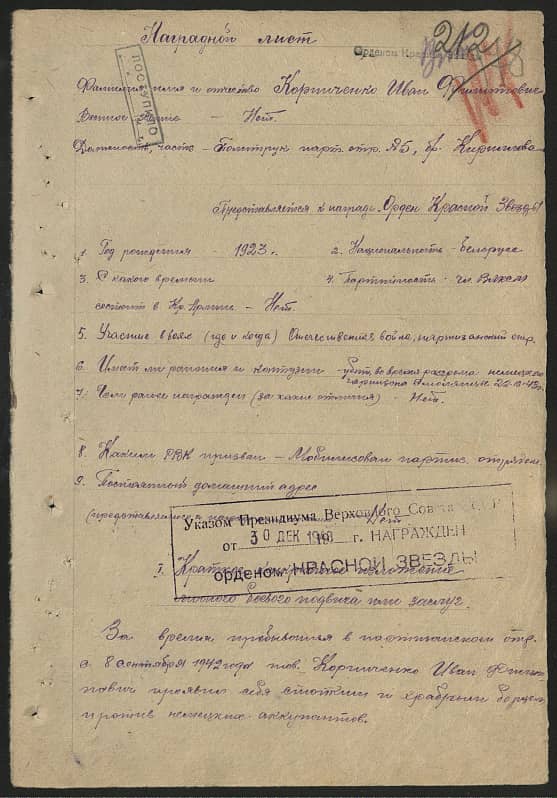 Наградной лист
212
ПОСТУПИЛО
Фамилия имя и отчество Корниченко Иван
Военное звание - Нет.
Должность, часть - Политрук парт. отр. №5, бр.
Представляется к награде. Орден Красной Звезды
1. Год рождения - 1923 г. 2. Национальность - Белорус
3. С какого времени 4. Партийность - чл. Влксм
состоит в Кр. Армии - Нет.
5. Участие в боях (где и когда) Отечественная война, партизанский отр.
6. Имеет ли ранения и контузии - убит во время разгрома немецкого
гарнизона 22-9-43г.
7. Чем ранее награжден (за какие отличия) - Нет.
8. Каким РВК призван - Мобилизован партиз. отрядом.
9. Постоянный домашний адрес
Нет
Указом Президиума Верховного Совета СССР
от 30 ДЕК 1948 г. НАГРАЖДЕН
орденом КРАСНОЙ ЗВЕЗДЫ
I. Краткое конкретное изложение
личного боевого подвига или заслуг.
За время пребывания в партизанском отр.
с 8 сентября 1942 года тов. Корниченко Иван
проявил себя стойким и храбрым борцом
против немецких оккупантов.